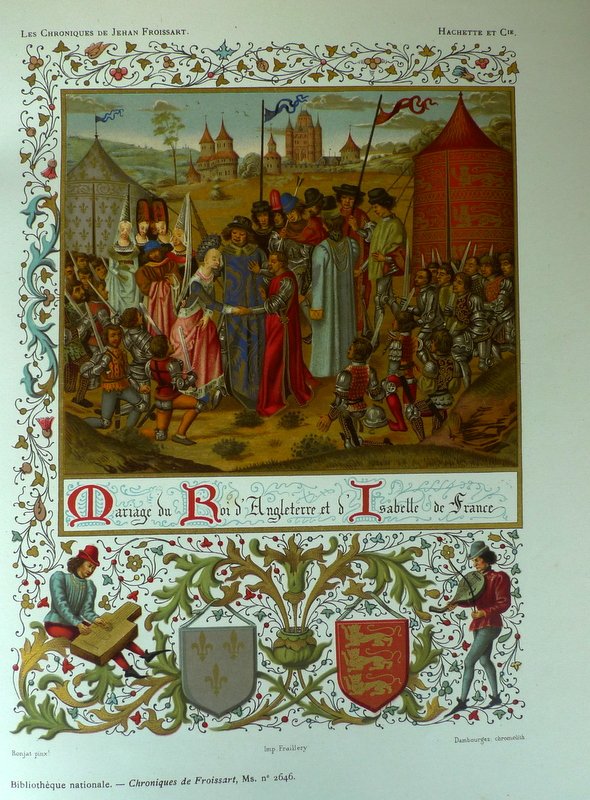 LES CHRONIQUES DE JEHAN FROISSART.
HACHETTE ET CIE.
Mariage du Roi d'Angleterre et d'Isabelle de France
Bonjat pinx!
Imp. Fraillery
Dambourgez chromolith
Bibliothèque nationale. — Chroniques de Froissart, Ms. n° 2646.